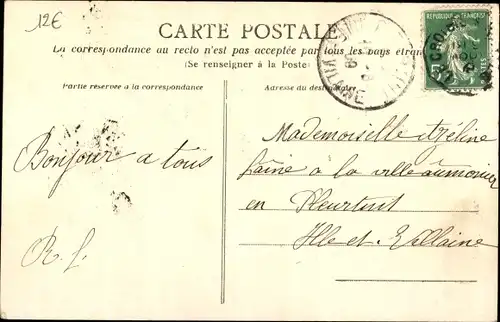 12€
CARTE POSTALE
La correspondance au recto n'est pas acceptée par tous les pays étran
(Se renseigner à la Poste)
Partie réservée à la correspondance
Adresse du destinataire
REPUBLIQUE FRANÇAISE
POSTES
VILAINE
Bonjour a tous
R. L.
Mademoiselle Azéline
à la ville aumonier
en Pleurtuit
Ille-et-Villaine